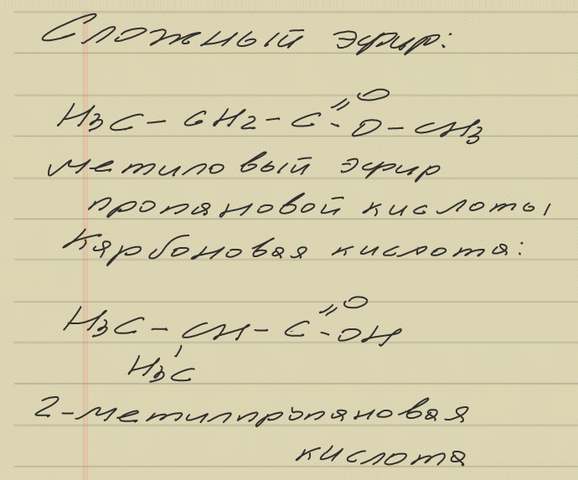 Сложный эфир:
O
H3C – CH2 – C – O – CH3
метиловый эфир
пропановой кислоты
Карбоновая кислота:
O
H3C – CH – C – OH
H3C
2-метилпропановая
кислота